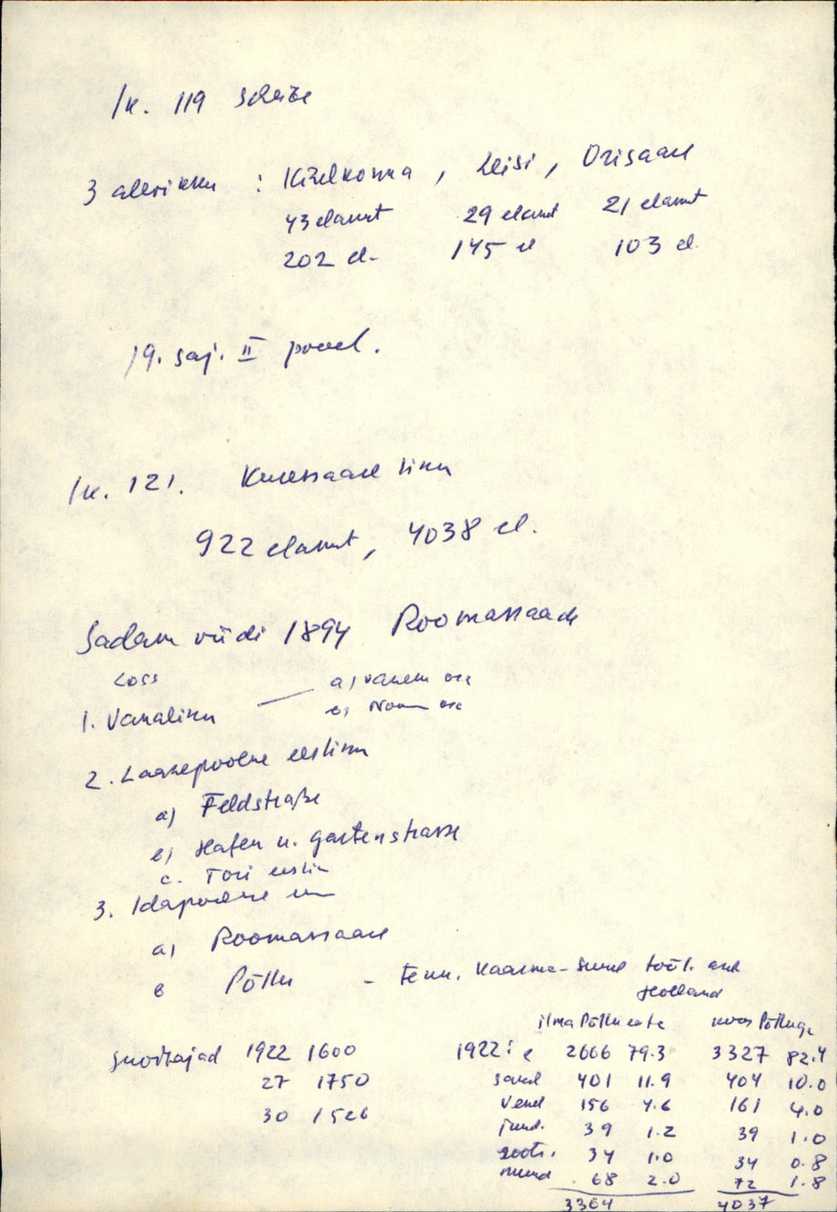 lk. 119 skeise
3 alevikku : Kihelkonna, Leisi, Orisaare
43 elamut 29 elamut 21 elamut
202 el. 145 el 103 el.
19. saj. II pool.
lk. 121. Kuressaare linn
922 elamut, 4038 el.
Sadam viidi 1894 Roomassaarde
Loss
1. Vanalinn — a) vanem osa
b) Noorem osa
2. Läänepoolne eeslinn
a) Feldstraße
b) Hafen u. Gartenstrasse
c. Tori eeslin
3. Idapoolne
a) Roomassaare
b Põllu - Tenn. Kaarma-Suure tööl. ask
Holland
ilma Põlluta koos Põlluga
suvitajad 1922 1600
27 1750
30 1526
1922: e 2666 79.3 3327 82.4
saksl 401 11.9 404 10.0
venel 156 4.6 161 4.0
juud. 39 1.2 39 1.0
rootsl. 34 1.0 34 0.8
muud 68 2.0 72 1.8
3364 4037